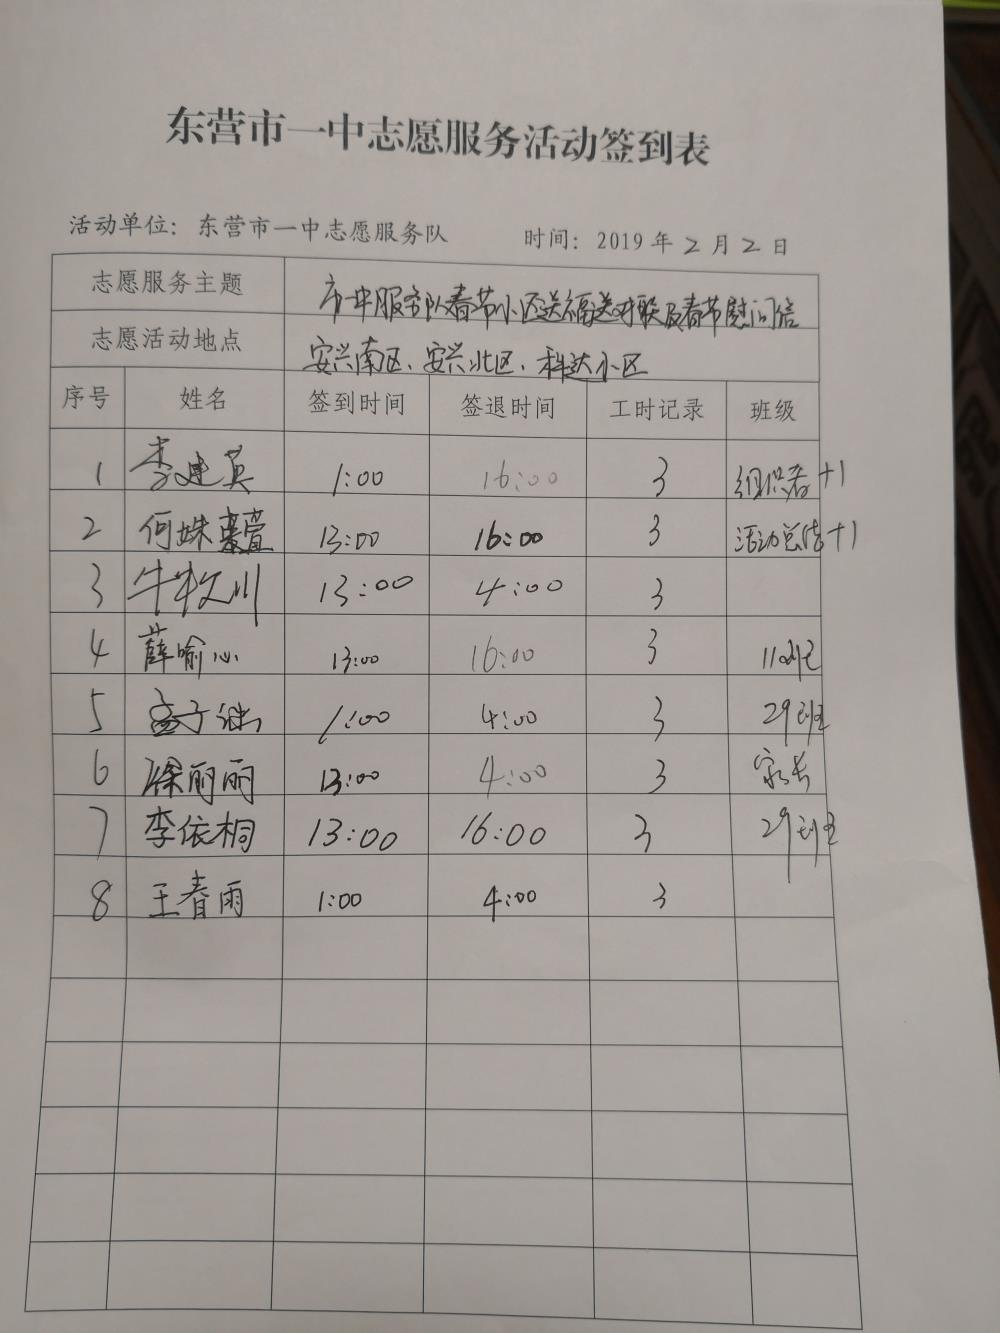 东营市一中志愿服务活动签到表
活动单位：东营市一中志愿服务队 时间：2019年2月2日
志愿服务主题 市一中服务队春节小区送福送对联及春节慰问信
志愿活动地点 安兴南区、安兴北区、科达小区
序号 姓名 签到时间 签退时间 工时记录 班级
1 李建英 1:00 16:00 3 组织者+1
2 何姝萱 13:00 16:00 3 活动总结+1
3 13:00 4:00 3
4 薛喻心 13:00 16:00 3 11班
5 孟子 1:00 4:00 3 29班
6 徐丽丽 13:00 4:00 3 家长
7 李依桐 13:00 16:00 3 29班
8 王春雨 1:00 4:00 3